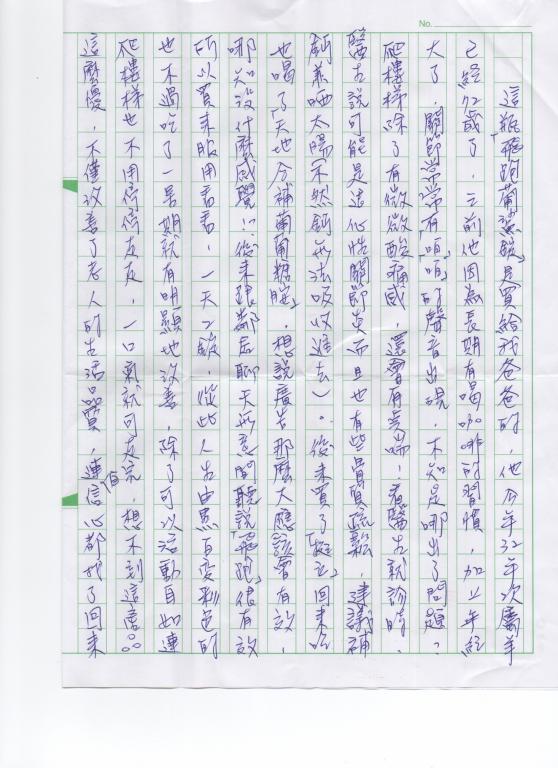 No.
這瓶「飛跑葡萄糖胺」是買給我爸爸的，他今年32年次屬羊
已經72歲了，之前他因為長期有喝咖啡的習慣，加上年紀
大了，關節常常有「啪啪」的聲音出現，不知是哪出了問題？
爬樓梯除了有微微酸痛感，還會有氣喘，看醫生就診時，
醫生說可能是退化性關節炎而且也有些骨質疏鬆，建議補
鈣兼晒太陽（不然鈣無法吸收進去）。後來買了「挺立」回來吃
也喝了「天地合補葡萄糖胺」，想說廣告那麼大應該會有效，
哪知沒什麼感覺！？後來跟鄰居聊天無意間聽說「飛跑」很有效
所以買來服用看看，一天2顆，從此人生由黑白變彩色的
也不過吃了一星期就有明顯地改善，除了可以活動自如連
爬樓梯也不用停停走走，一口氣就可走完，想不到這麼
這麼優，不僅改善了老人的生活品質，連自信心都找了回來